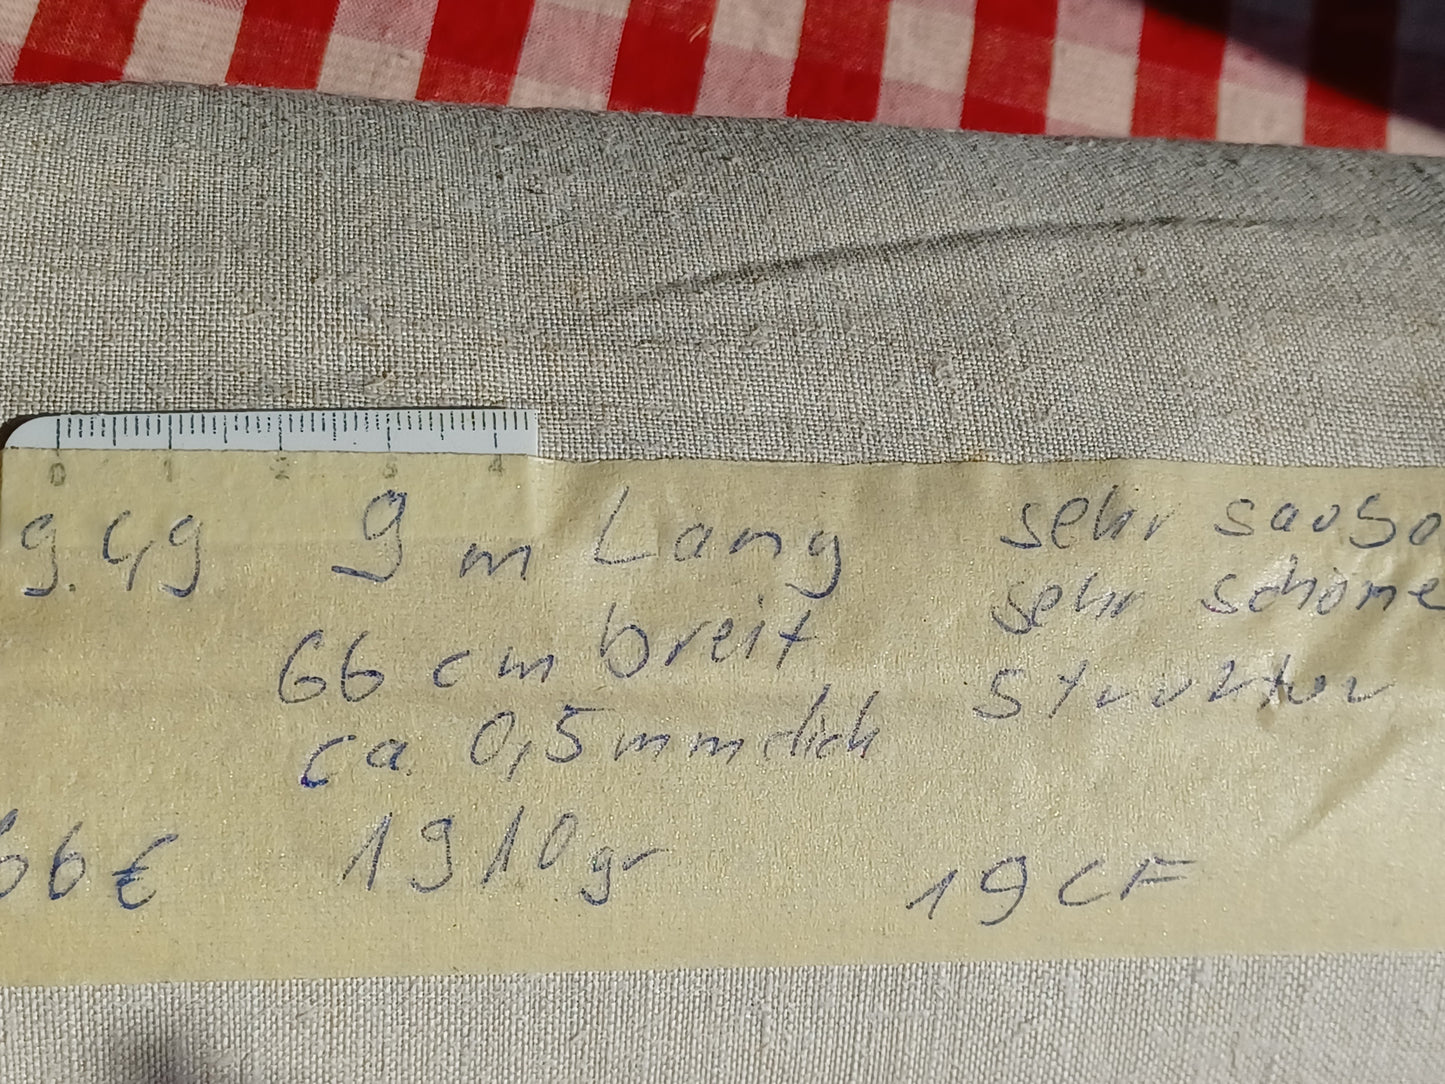 0 1 2 3 4
9.49 9 m Lang sehr saubo
66 cm breit sehr schöne
ca. 0,5 mm dick Struktur
66€ 1910 gr 19 CF